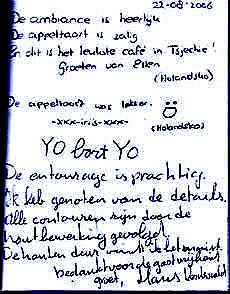 22-08-2006
De ambiance is heerlijk
De appeltaart is zalig
En dit is het leukste café in Tsjechie!
Groeten van Ellen
(Holandsko)
De appeltaart was lekker.
-xxx-iris-xxx-
(Holandsko)
YO bort YO
De entourage is prachtig.
Ik heb genoten van de details.
Alle contouren zijn door de
houtbewerking gevolgd.
De houten deur vind ik
bedankt voor de gastvrijheid
groet, Hans